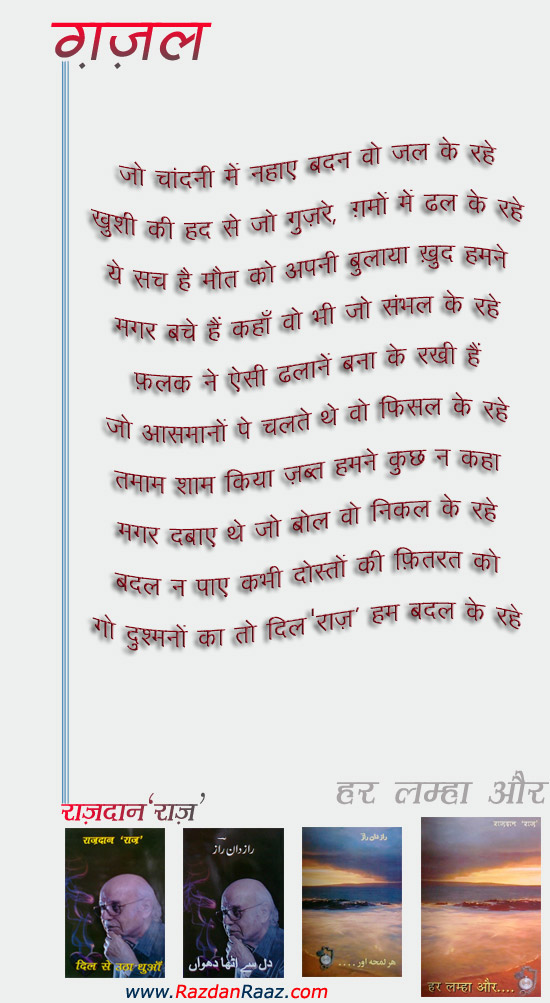 ग़ज़ल
जो चांदनी में नहाए बदन वो जल के रहे
ख़ुशी की हद से जो गुज़रे, ग़मों में ढल के रहे
ये सच है मौत को अपनी बुलाया ख़ुद हमने
मगर बचे हैं कहाँ वो भी जो संभल के रहे
फ़लक ने ऐसी ढलानें बना के रखी हैं
जो आसमानों पे चलते थे वो फिसल के रहे
तमाम शाम किया ज़ब्त हमने कुछ न कहा
मगर दबाए थे जो बोल वो निकल के रहे
बदल न पाए कभी दोस्तों की फ़ितरत को
गो दुश्मनों का तो दिल 'राज़' हम बदल के रहे
हर लम्हा और
राज़दान 'राज़'
राज़दान 'राज़'
दिल से उठा धुआँ
راز دان راز
دل سے اٹھا دھواں
راز دان راز
ہر لمحہ اور ....
राज़दान 'राज़'
हर लम्हा और....
www.RazdanRaaz.com